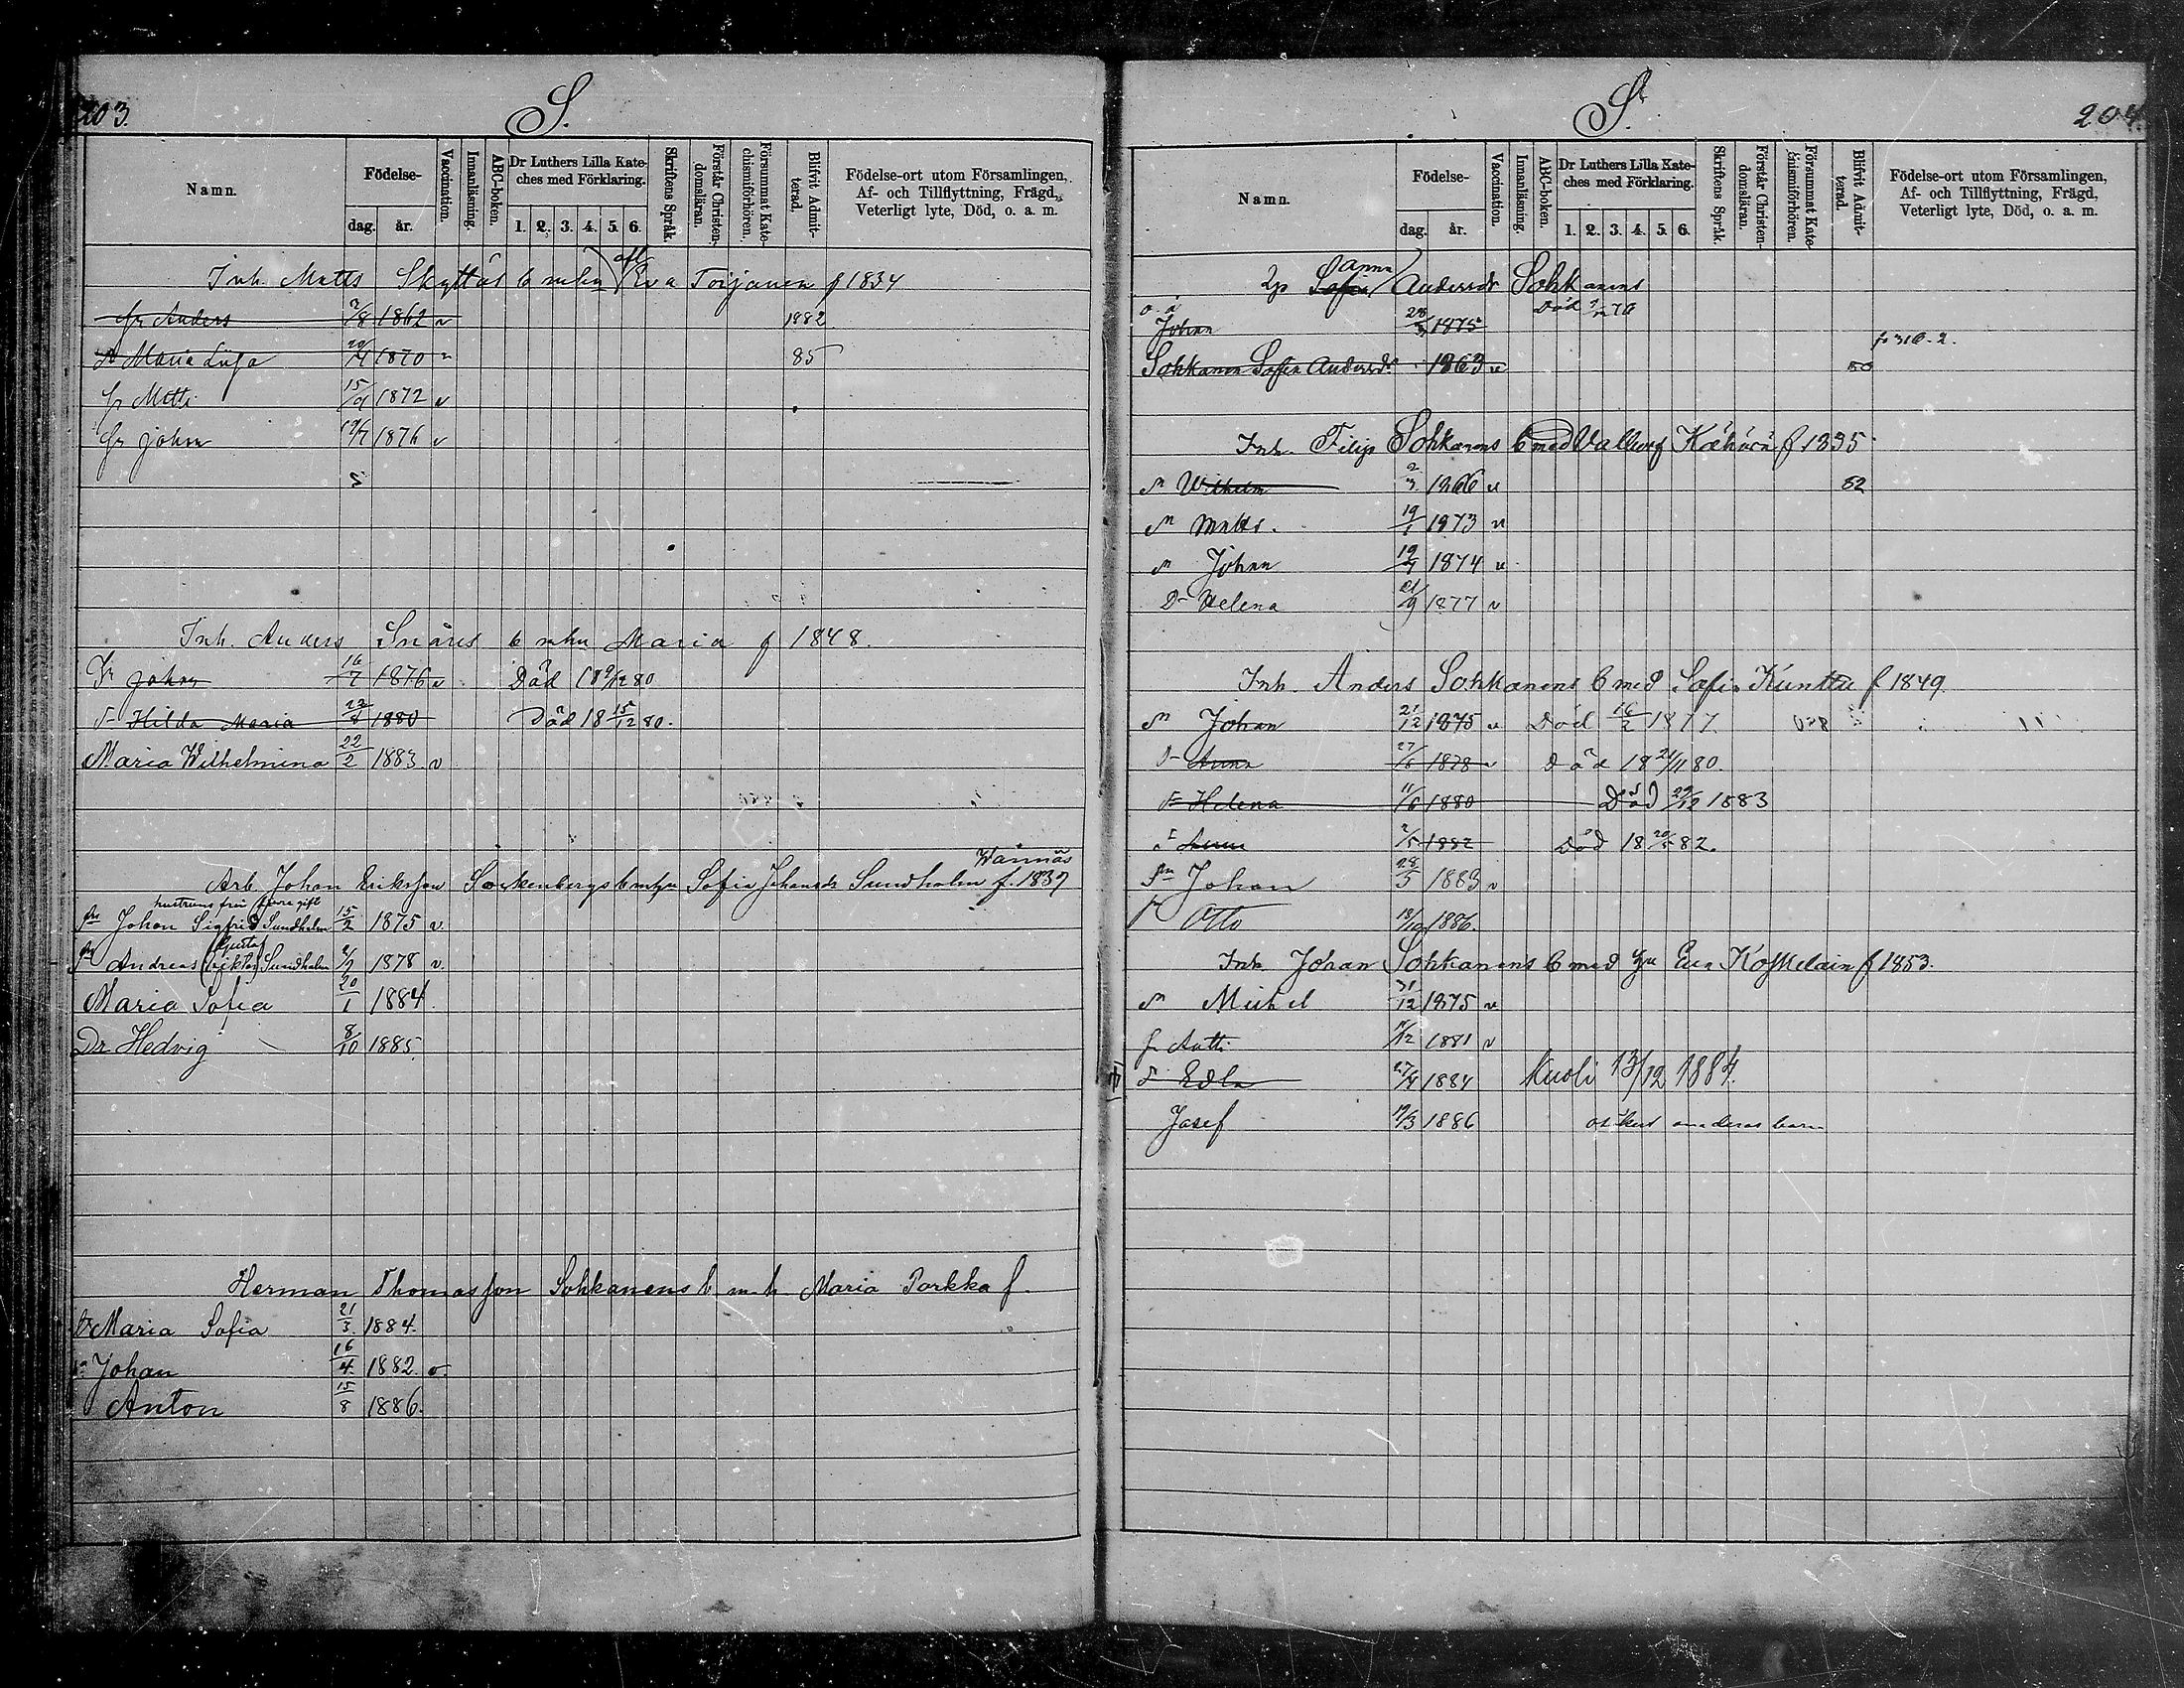 203.
S.
Namn.
Födelse-
dag.
år.
Vaccination.
Innanläsning.
ABC-boken.
Dr Luthers Lilla Kate-
ches med Förklaring.
1. 2. 3. 4. 5. 6.
Skriftens Språk.
Förstår Christen-
domsläran.
Försummat Kate-
chismiförhören.
Blifvit Admit-
terad.
Födelse-ort utom Församlingen,
Af- och Tillflyttning, Frägd,
Veterligt lyte, Död, o. a. m.
Inh. Matts Skyttäs b mhu Eva Toijanen f 1834
Anders 2/8 1862 v 1882
Maria Lisa 1870 85
Matti 15/9 1872 v
Johan 1876 v
Inh. Anders Snåres b mhu Maria f 1848.
Johan 16/7 1876 v Död 18 9/12 80
Hilda Maria 1880 Död 18 15/12 80.
Maria Wilhelmina 22/2 1883. v
Wännäs
Arb. Johan Eriksson Sorkenbergs b mhu Sofia Johansdr Sundholm f. 1837
hustruns från förra gift
Johan Sigfrid Sundholm 15/2 1875 v.
Gustaf
Andreas (Viktor) Sundholm 1878 v.
Maria Sofia 20/1 1884.
Dr Hedvig 8/10 1885.
Herman Thomasson Sohkanens b m h Maria Porkka f.
Dr Maria Sofia 21/3. 1884.
Johan 16/4. 1882. v.
Anton 15/8 1886.
S.
204.
Namn.
Födelse-
dag.
år.
Vaccination.
Innanläsning.
ABC-boken.
Dr Luthers Lilla Kate-
ches med Förklaring.
1. 2. 3. 4. 5. 6.
Skriftens Språk.
Förstår Christen-
domsläran.
Försummat Kate-
chismiförhören.
Blifvit Admit-
terad.
Födelse-ort utom Församlingen,
Af- och Tillflyttning, Frägd,
Veterligt lyte, Död, o. a. m.
Anna
Sofia Andersdr Sohkanens
o. ä. Död 76
Johan 1875
316. 2.
Sohkanen Sofia Andersdr 1863 v 80
Inh. Filip Sohkanens b med Valborg Kähärä f 1835
Wilhelm 2/3 1866 v 82
Matts. 19/1 1873 v
Johan 19/7 1874 v
Dr Helena 21/9 1877 v
Inh. Anders Sohkanens b med Sofia Kunttu f 1849.
Johan 21/12 1875 v Död 16/2 1877
Anna 1878 v Död 18 21/11 80.
Helena 11/6 1880 Död 29/12 1883
2/5 1882 Död 18 82.
Johan 28/5 1883 v
Otto 18/10 1886.
Inh. Johan Sohkanens b med hu Eva Koskelain f 1853.
Michel 31/12 1875 v.
Antti 1881 v
Edla 27/4 1884 Kuoli 13/12 1884.
Josef 1886 barn